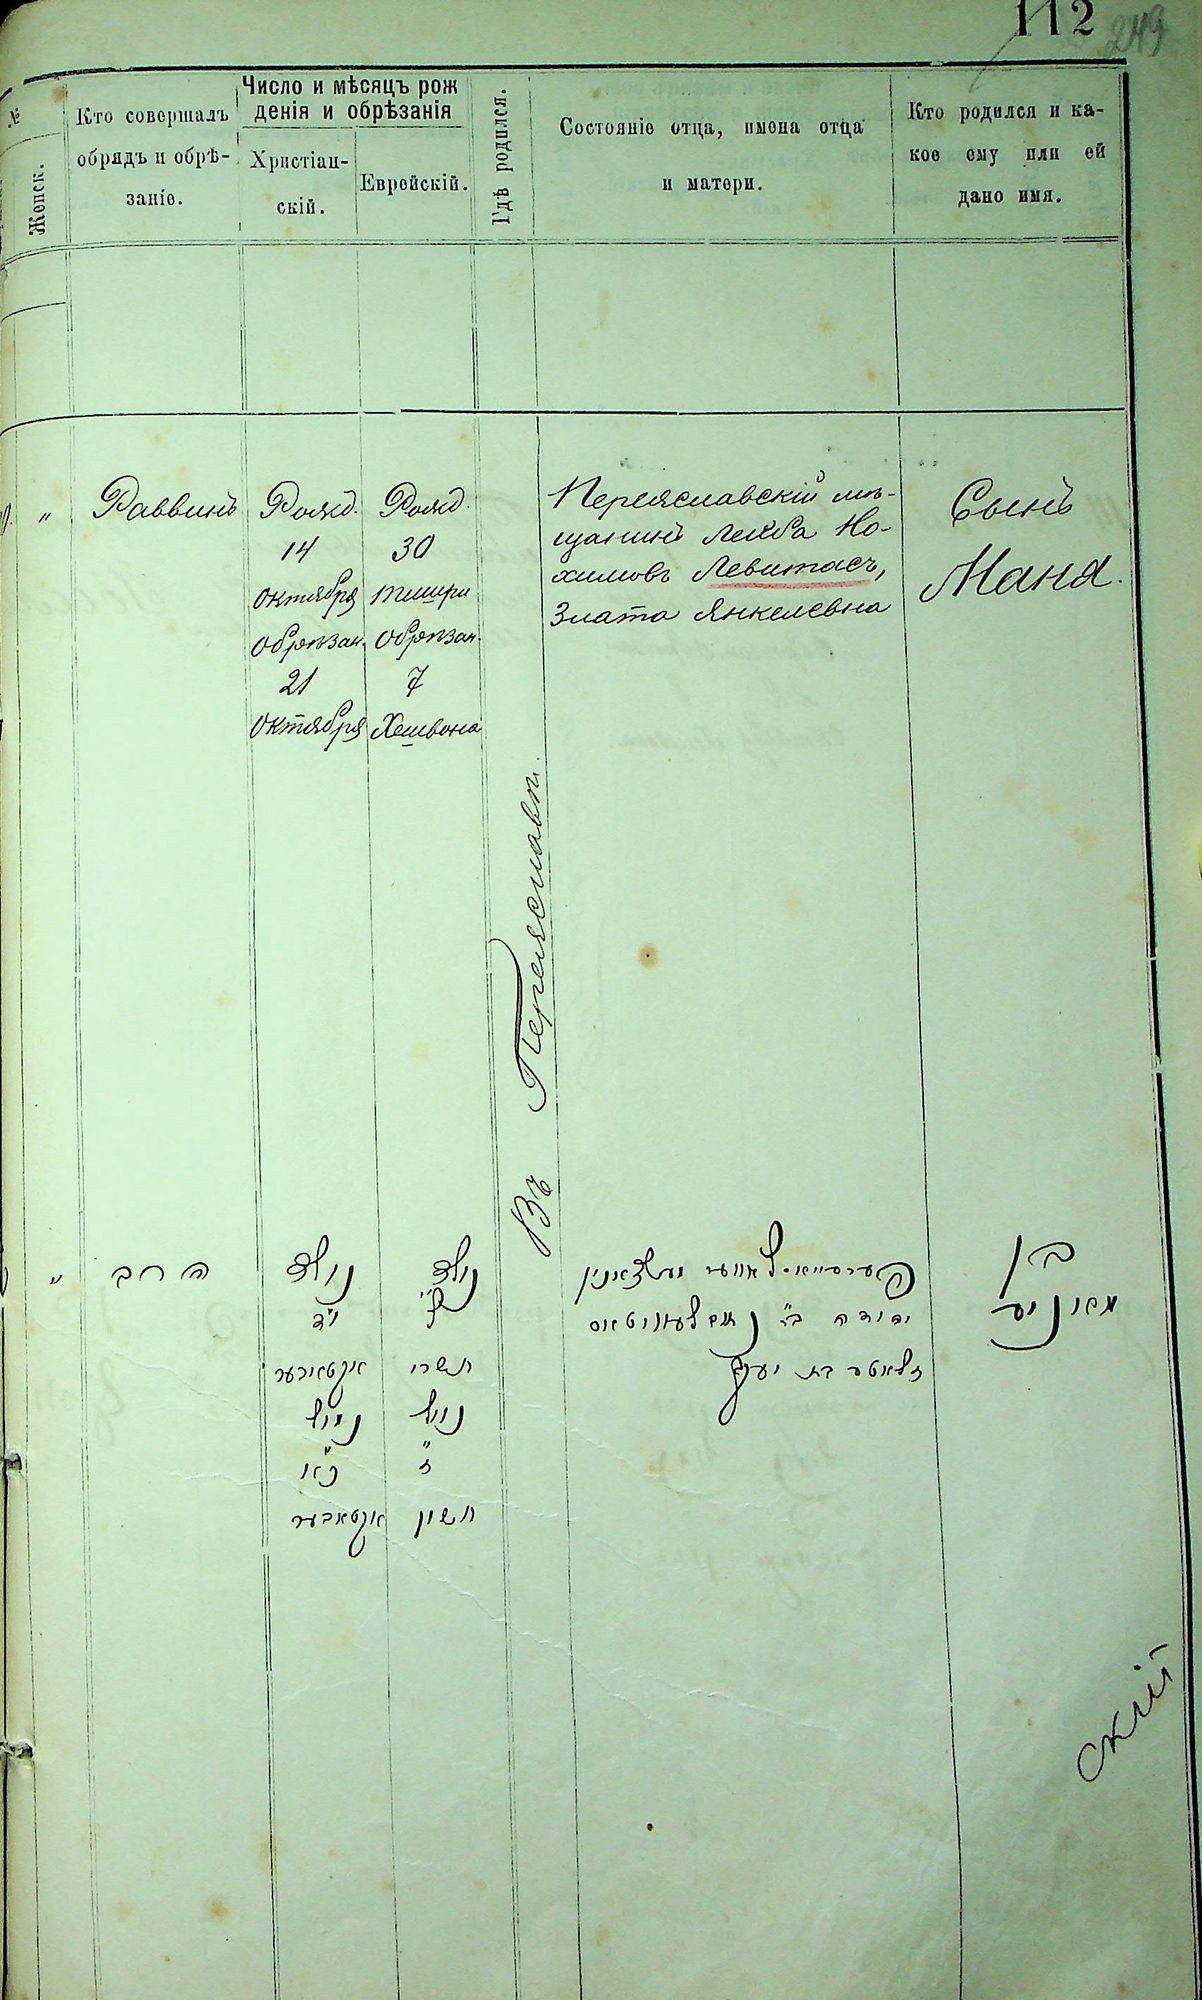 112
249
№
Женск.
Кто совершалъ
обрядъ и обрѣ-
заніе.
Число и мѣсяцъ рож
денія и обрѣзанія
Христіан-
скій.
Еврейскій.
Гдѣ родился.
Состояніе отца, имена отца
и матери.
Кто родился и ка-
кое ему или ей
дано имя.
"
Раввинъ
Рожд.
14
октября
обрѣзан.
21
октября
Рожд.
30
тишри
обрѣзан.
7
Хешвона
Въ Переяславѣ.
Переяславскій мѣ-
щанинъ Лейба Но-
химовъ Левитасъ,
Злата Янкелевна
Сынъ
Мана.
"
הרב
נולד
י"ד
אקטאבער
נימול
כ"א
אקטאבער
נולד
ל'
תשרי
נימול
ז"
חשון
יהודה ב"נ
זלאטע בת יעקב
בן
סкій